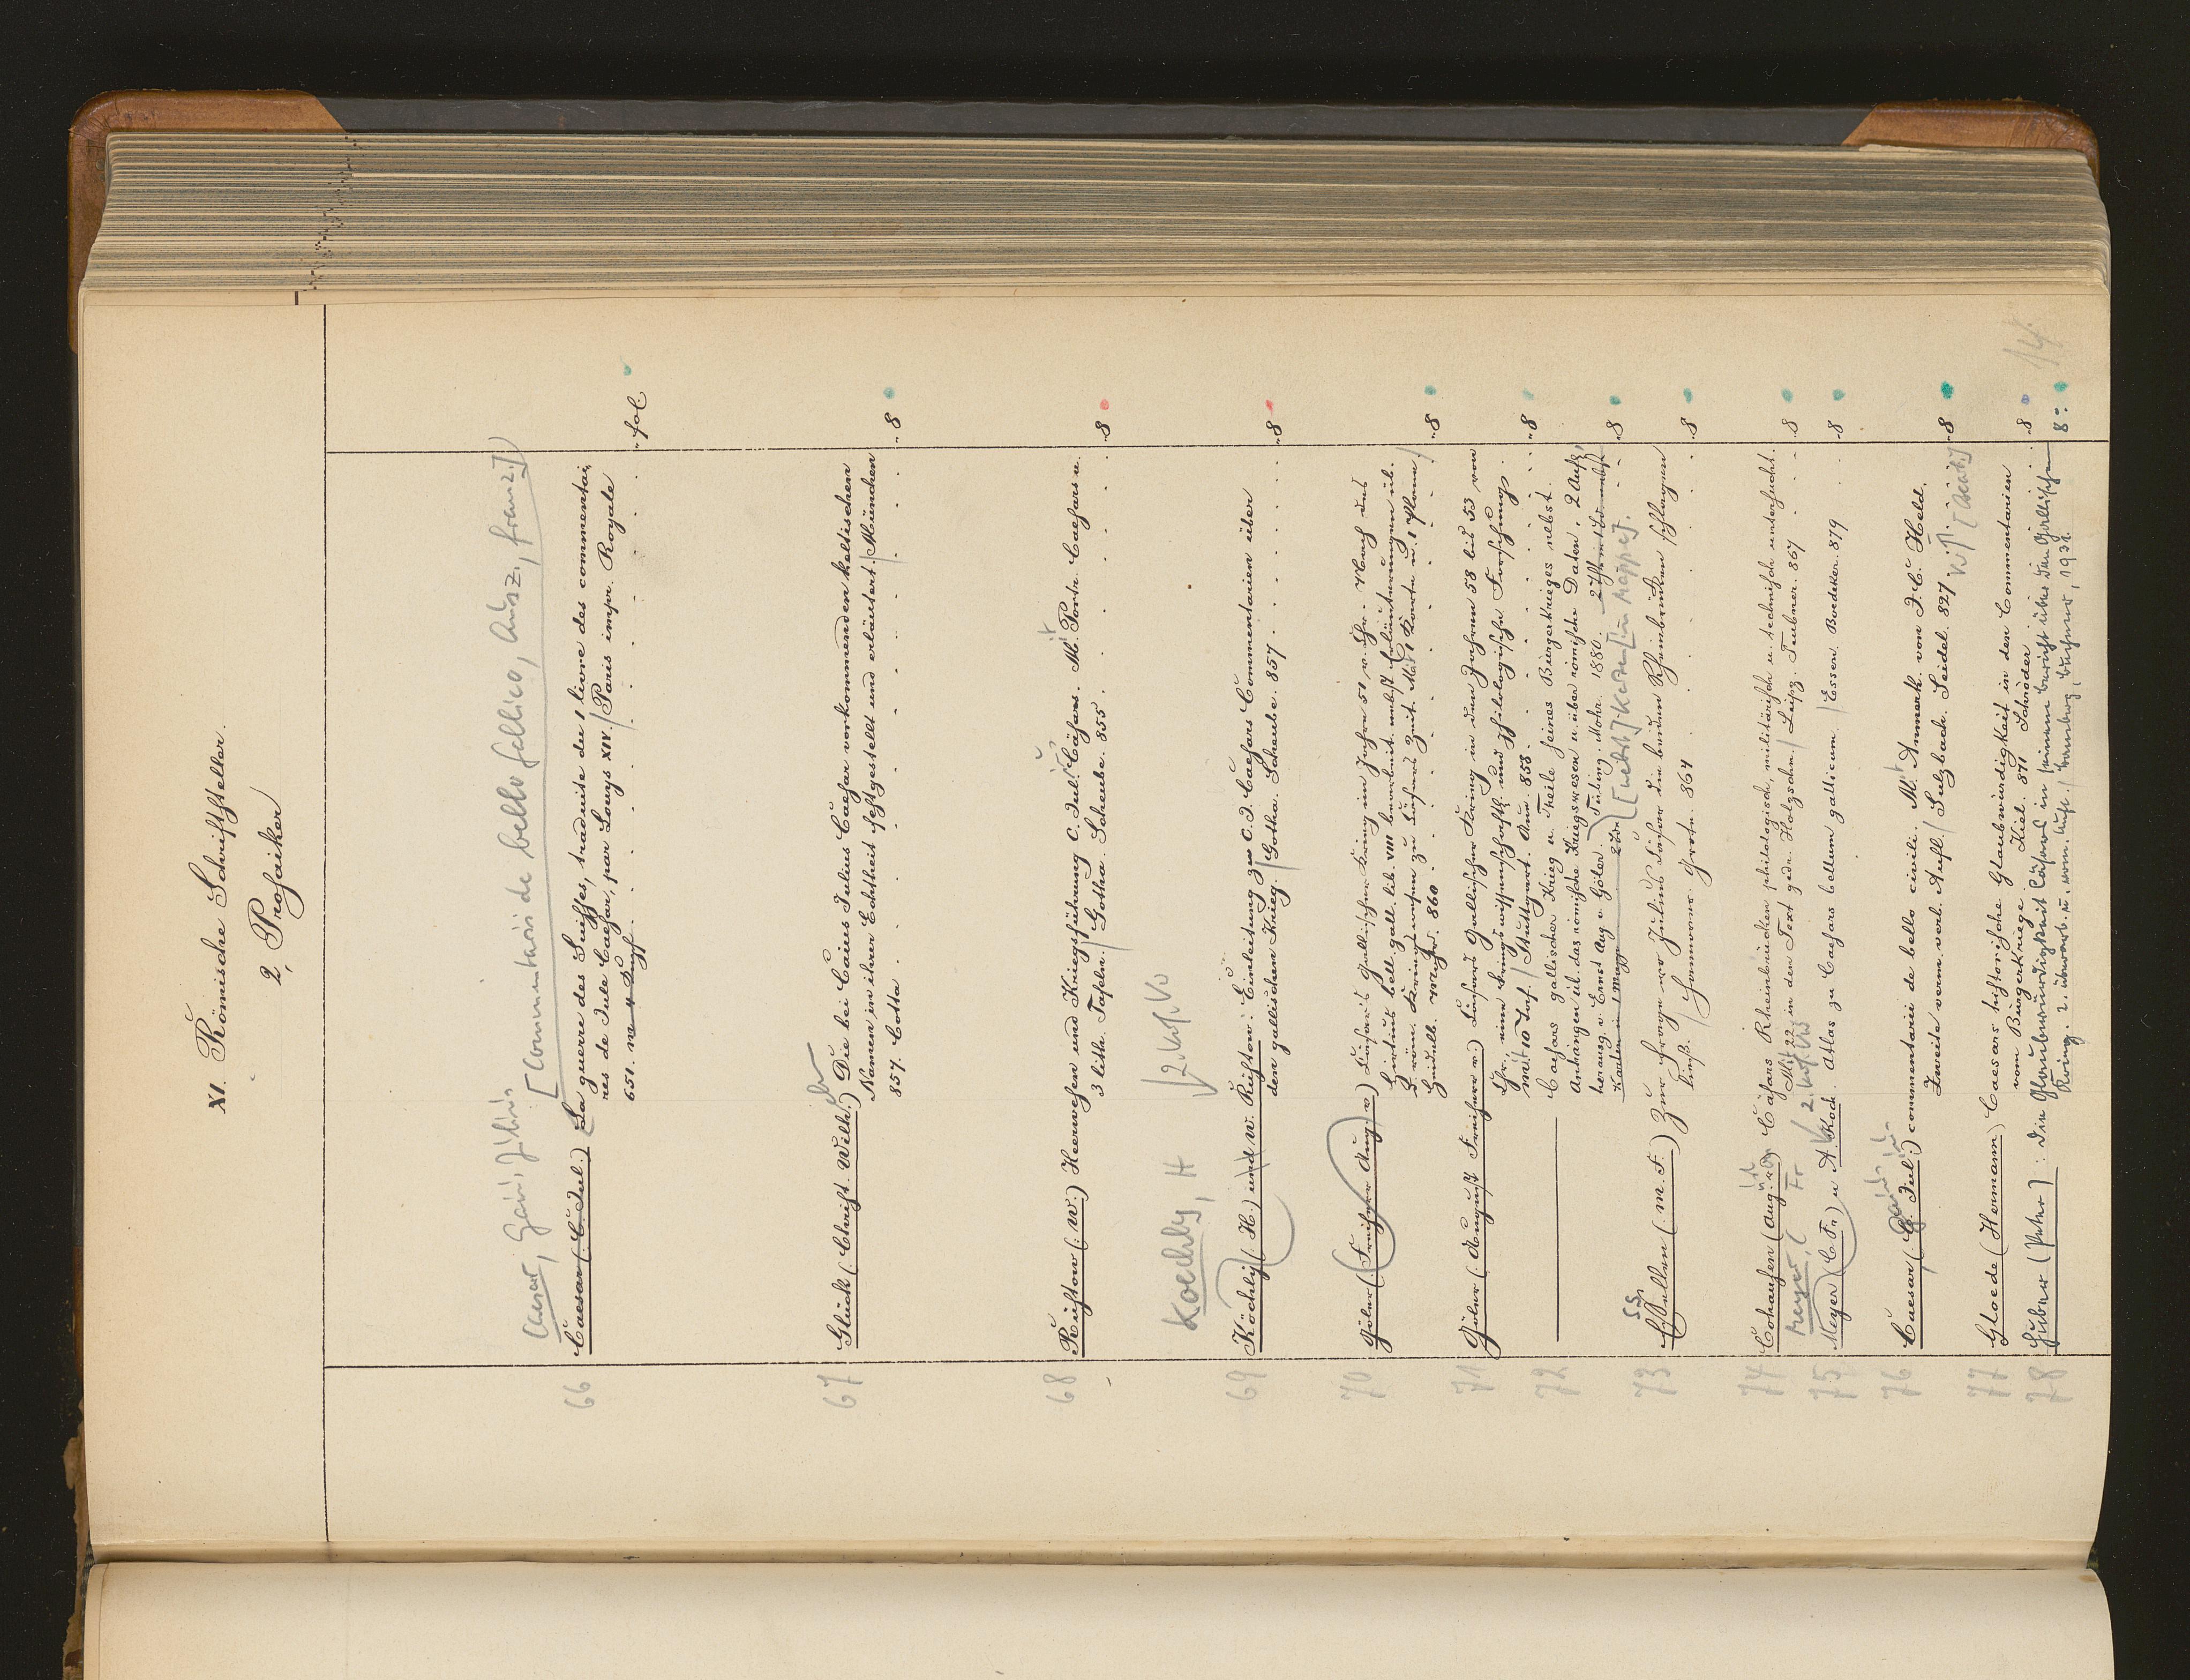 XI. Römische Schriftsteller.
2, Prosaiker
Caesar, Gaius Julius [Commentarii de bello Gallico, Ausz., franz.]
66 Caesar (C. Jul.) La guerre des Suisses, traduite du 1 livre des commentai,
res de Jule Caesar, par Louys XIV. / Paris impr. Royale
651. m 4 Kupf. fol.
67 Glück (Christ. Wilh.) Die bei Caius Julius Caesar vorkommenden keltischen
Namen in ihrer Echtheit festgestellt und erläutert. / München
857. Cotta 8
68 Rüstow (W.) Heerwesen und Kriegsführung C. Jul. Cäsars. Mit Portr. Caesars u.
3 lith. Tafeln. / Gotha. Scheube. 855. 8
Koechly, H 2. Verf. Vw
69 Köchly (H.) und W. Rüstow: Einleitung zu C. J. Caesars Commentarien über
den gallischen Krieg. / Gotha. Scheube. 857. 8
70 Göler (Freiherr Aug. v) Cäsar's Gallischer Krieg im Jahre 51 v. Chr. Nach des
Hirtius bell. gall. lib. VIII bearbeit. nebst Erläuterungen üb.
d. röm. Kriegswesen zu Cäsars Zeit. Mit 1 Karte u. 1 Plane /
Heidelb. Mohr. 860 8
71 Göler (August Freiherr v.) Cäsars Gallischer Krieg in den Jahren 58 bis 53 von
Chr., eine kriegswissenschaftl. und philologische Forschung.
Mit 10 Taf. / Stuttgart. Aue. 858. 8
72 Caesars gallischer Krieg u. Theile seines Bürgerkrieges nebst
Anhängen üb. das römische Kriegswesen u. über römische Daten. 2 Aufl
herausg v. Ernst Aug v Göler. / Tübing. Mohr. 1880. 2 Thle in 1 Bde nebst
Karten in 1 Mappe 2 Bde [nebst] Karten [in Mappe]. 8
73 Essellen (M. F.) Zur Frage wo Julius Cäsar die beiden Rheinbrücken schlagen
ließ. / Hannover Grote. 864 8
74 Cohausen (August v) Cäsars Rheinbrücken philologisch, militärisch u. technisch untersucht.
Mit 22 in den Text gedr. Holzschn / Leipz. Teubner. 867 8
Meyer, C Fr 2. Verf. Vw
75 Meyer (C. Fr.) u A. Koch. Atlas zu Caesars bellum gallicum. / Essen. Baedeker. 879 8
76 Caesar (C. Jul.) commentarii de bello civili. Mit Anmerk. von J. C. Held.
Zweite verm. verb. Aufl. / Sulzbach. Seidel. 827 8
77 Gloede (Hermann) Caesars historische Glaubwürdigkeit in den Commentarien
vom Bürgerkriege. Kiel. 871 Schröder 8
78 Huber (Peter): Die Glaubwürdigkeit Cäsars in seinem Bericht über den Gallischen
Krieg. 2. überarb. u. verm. Aufl. / Bamberg, Buchner, 1931. 8°
14